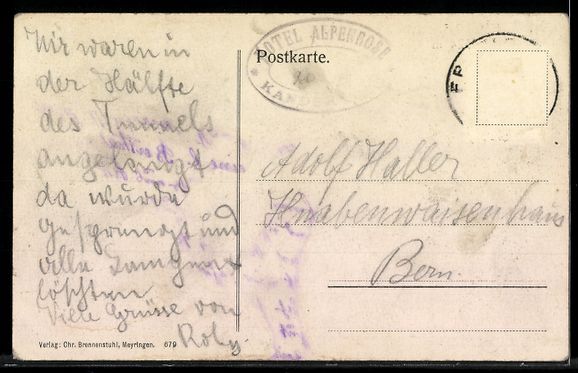 Wir waren in
der Hälfte
des Tunnels
angelangt
da wurde
gesprengt und
alle Lampen
löschten
Viele Grüsse von
Roby.
Verlag: Chr. Brennenstuhl, Meyringen. 679
HOTEL ALPENROSE
Postkarte.
Adolf Haller
Knabenwaisenhaus
Bern.